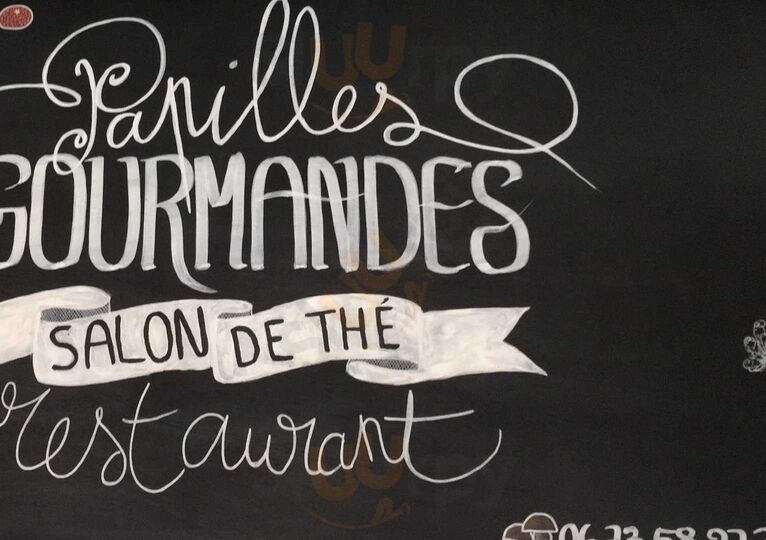 Papilles
GOURMANDES
SALON DE THÉ
restaurant